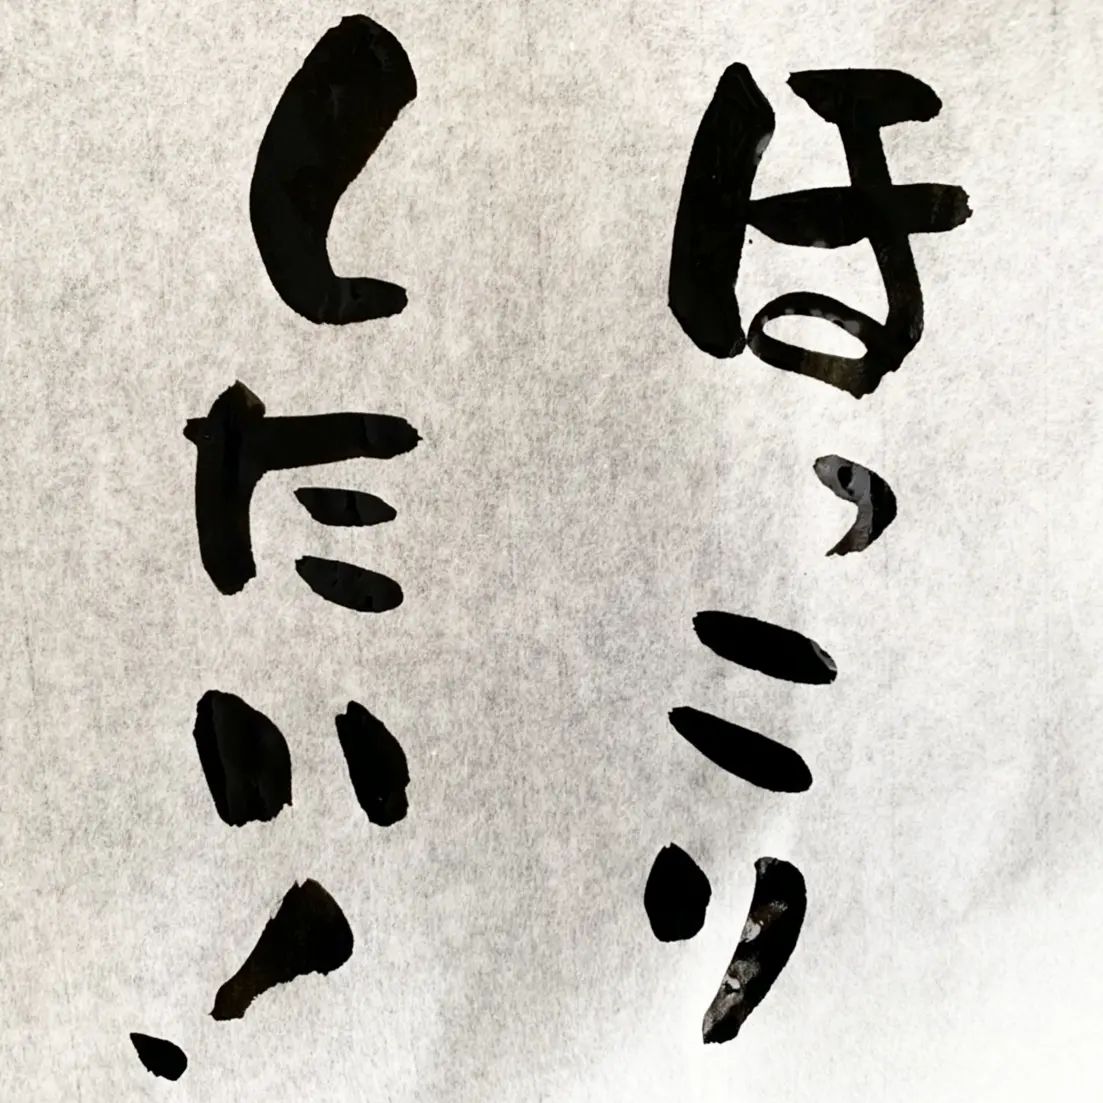 ほっこり
したい!